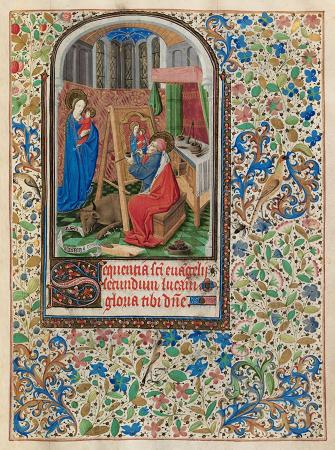 Sequentia sci euangelij
secundum lucam
gloria tibi dne